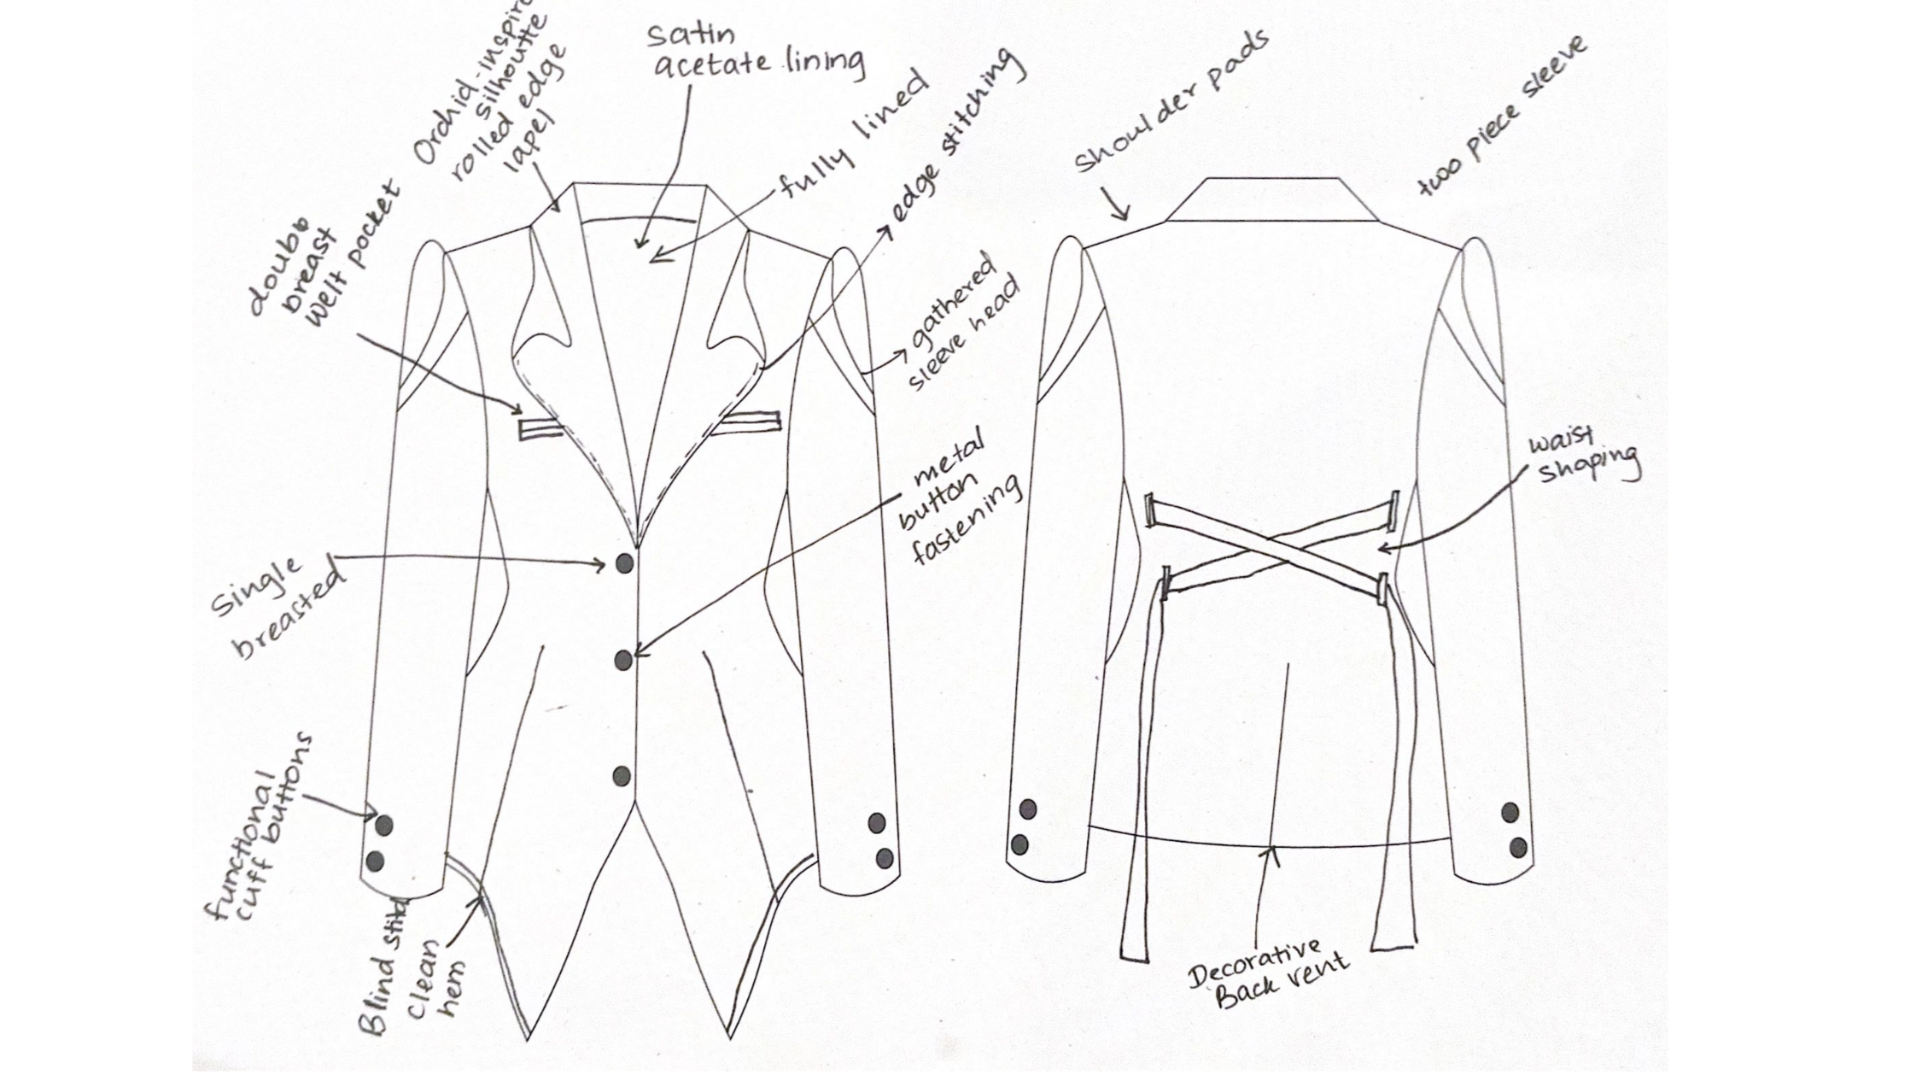 Orchid-inspire
silhoutte
rolled edge
lapel
satin
acetate lining
fully lined
edge stitching
doubb
breast
welt pocket
gathered
sleeve head
metal
button
fastening
Single
breasted
functional
cuff buttons
Blind stitc
clean
hem
shoulder pads
two piece sleeve
waist
shaping
Decorative
Back vent